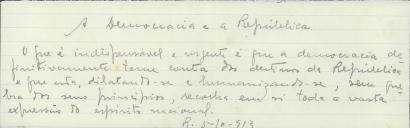 A Democracia e a República
O que é indispensável e urgente é que a democracia de-
finitivamente tome conta dos destinos da República
e que esta, dilatando-se e humanizando-se, sem que-
bra dos seus princípios, recolha em si toda a vasta
expressão do espírito nacional.
R. 5-10-913